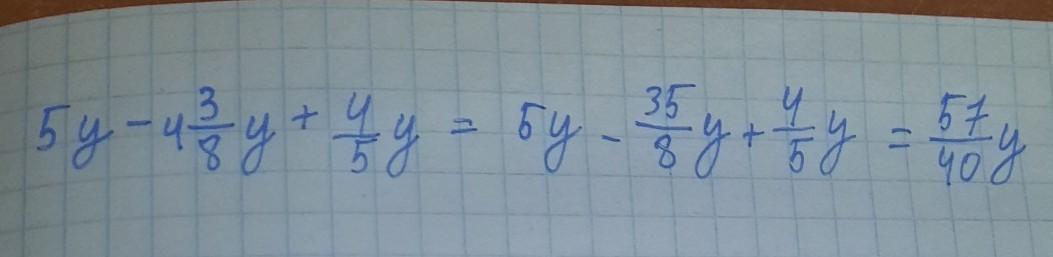 5y - 4 3/8 y + 4/5 y = 5y - 35/8 y + 4/5 y = 57/40 y